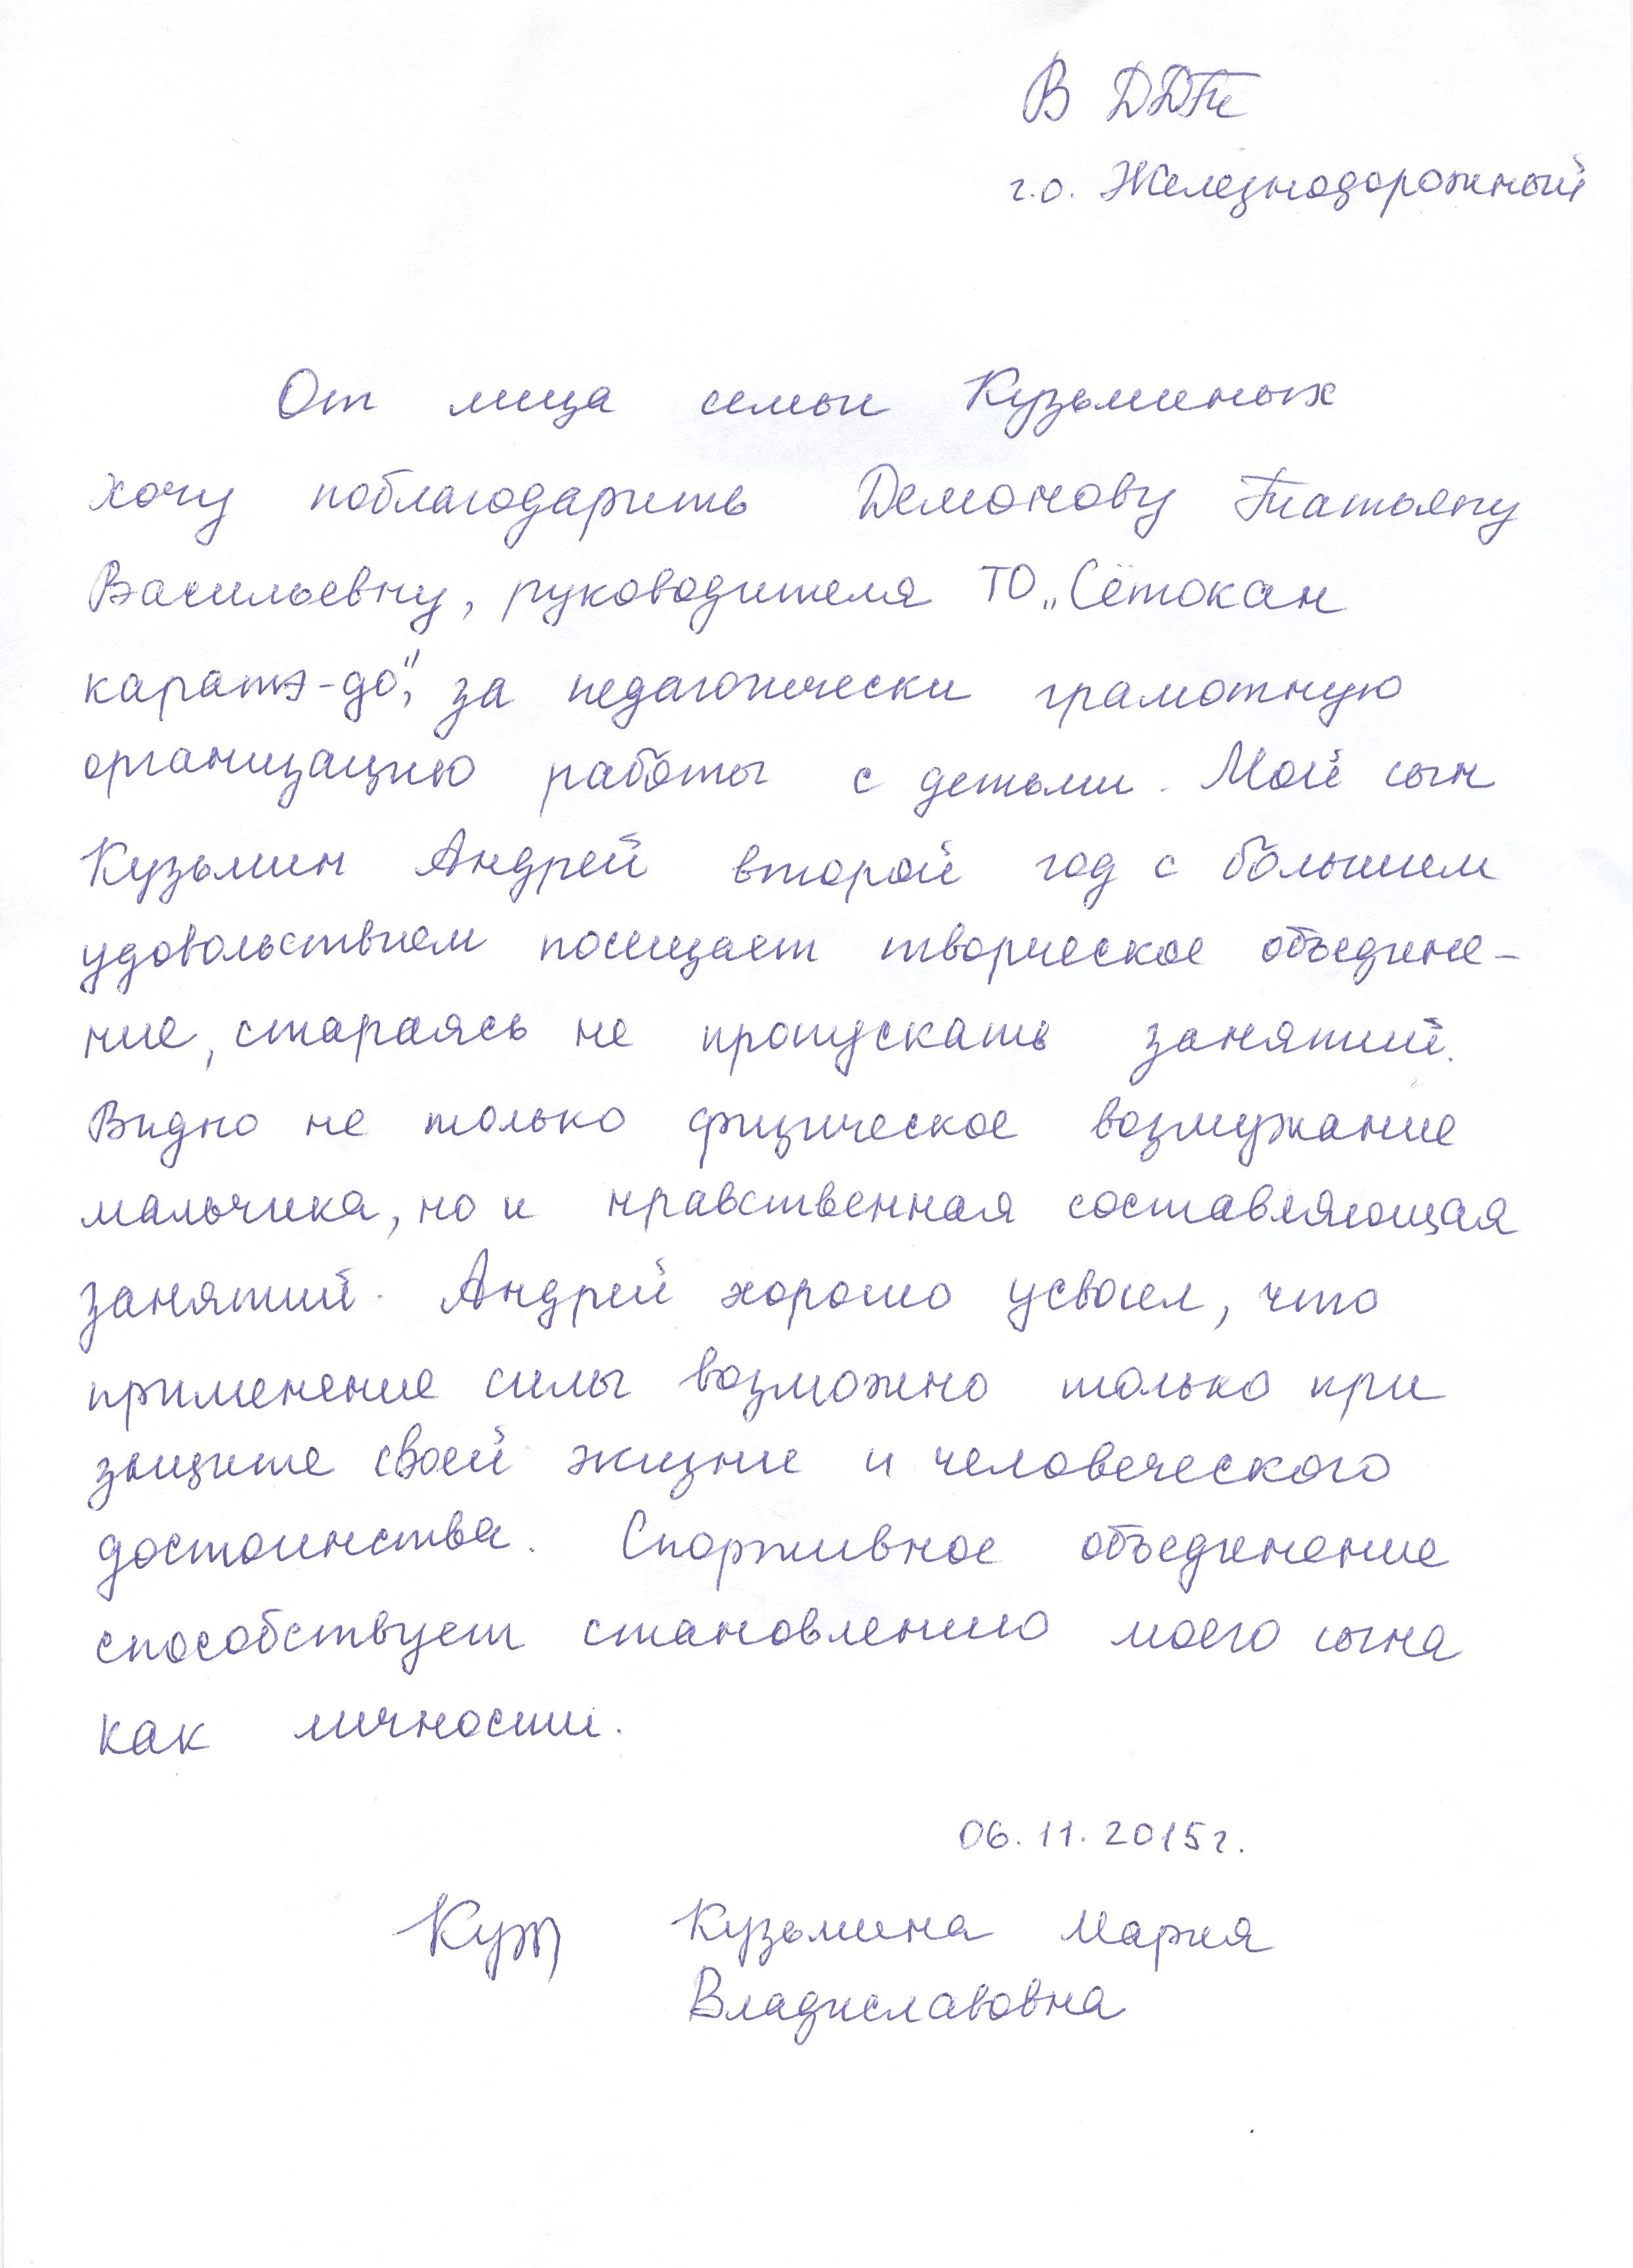 В ДДТ
г.о. Железнодорожный
От лица семьи Кузьминых
хочу поблагодарить Демонову Татьяну
Васильевну, руководителя ТО „Сётокан
каратэ-до", за педагогически грамотную
организацию работы с детьми. Мой сын
Кузьмин Андрей второй год с большим
удовольствием посещает творческое объедине-
ние, стараясь не пропускать занятий.
Видно не только физическое возмужание
мальчика, но и нравственная составляющая
занятий. Андрей хорошо усвоил, что
применение силы возможно только при
защите своей жизни и человеческого
достоинства. Спортивное объединение
способствует становлению моего сына
как личности.
06.11.2015г.
Кузьмина Мария
Владиславовна